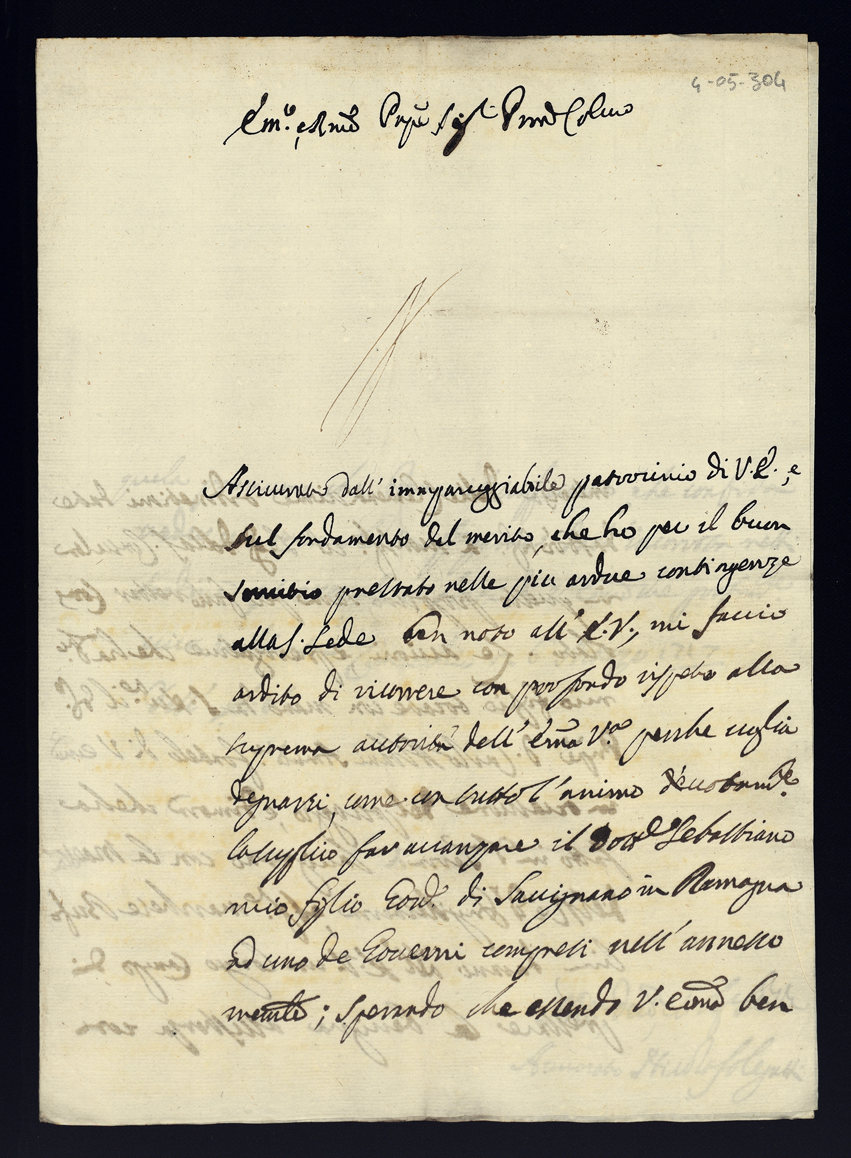 4-05-304
Em.o e Rmo Prñpe Sig.r Prñe Colmo
Assicurato dall' impareggiabile patrocinio di V.E., e
sul fondamento del merito, che ho per il buon
servitio prestato nelle più ardue contingenze
alla S. Sede ben noto all' E.V., mi faccio
ardito di ricorrere con profondo rispetto alla
suprema autorità dell' Emã V.ra perche voglia
degnarsi, come con tutto l'animo
la supplico far avanzare il Dott.e Sebastiano
mio figlio Gov.re di Savignano in Romagna
ad uno de Governi compresi nell' annesso
; sperando che essendo V. Emã ben